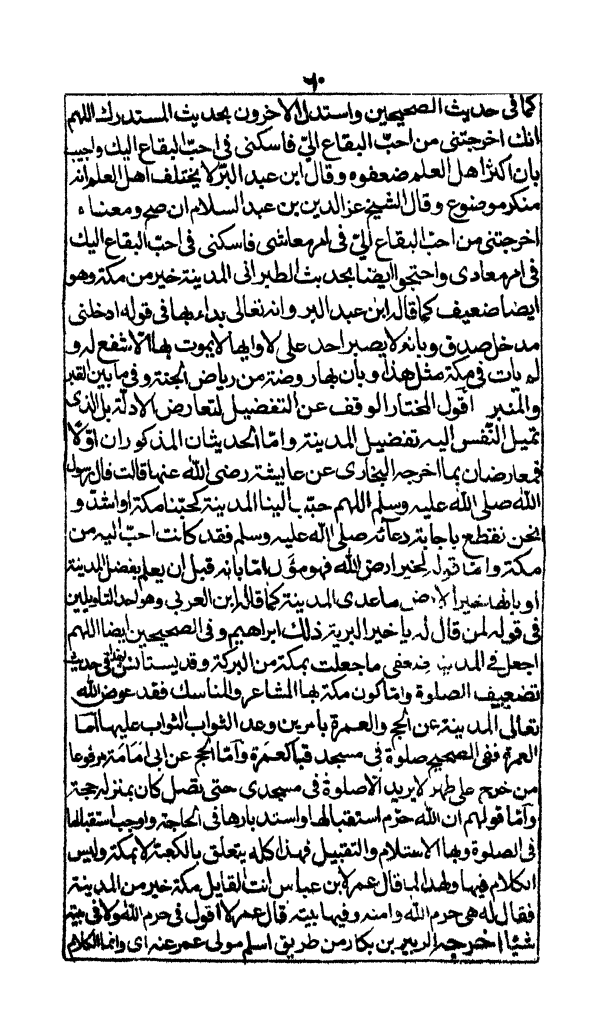 ٦٠
كما فى حديث الصحيحين واستدل الاخرون بحديث المستدرك اللهم
انك اخرجتنى من احبّ البقاع الىّ فاسكنى فى احبّ البقاع اليك واجيب
بان اكثر اهل العلم ضعفوه وقال ابن عبد البرّ لا يختلف اهل العلم انه
منكر موضوع وقال الشيخ عز الدين بن عبد السلام ان صح ومعناه
اخرجتنى من احبّ البقاع الىّ فى امر معاشى فاسكنى فى احبّ البقاع اليك
فى امر معادى واحتجوا ايضا بحديث الطبرانى المدينة خير من مكة وهو
ايضا ضعيف كما قاله ابن عبد البر وانه تعالى بداء بها فى قوله ادخلنى
مدخل صدق وبانه لا يصبر احد على لاوايها لا يموت بها الا شفع له و
لم يات فى مكة مثل هذا وبان بها روضة من رياض الجنة وفى ما بين القبر
والمنبر اقول المختار الوقف عن التفضيل لتعارض الادلّة بل الذى
تميل النّفس اليه تفضيل المدينة وامّا الحديثان المذكوران اوّلا
فمعارضان بما اخرجه البخارى عن عايشة رضى الله عنها قالت قال رسول
الله صلى الله عليه وسلم اللهم حبّب الينا المدينة كحبّنا مكة او اشدّ و
نحن نقطع باجابة دعائه صلى الله عليه وسلم فقد كانت احبّ اليه من
مكة وامّا قوله لخير ارض الله فهو مؤول امّا بانه قبل ان يعلم بفضل المدينة
او بانها خير الارض ما عدى المدينة كما قاله ابن العربى وهو احد التاويلين
فى قوله لمن قال له يا خير البرية ذلك ابراهيم وفى الصحيحين ايضا اللهم
اجعل فى المدينة ضعفى ما جعلت بمكة من البركة وقد يستانس لهذا فى حديث
تضعيف الصلوة وامّا كون مكة بها المشاعر والمناسك فقد عوض الله
تعالى المدينة عن الحج والعمرة بامرين وعد الثواب عليها امّا
العمرة ففى الصحيح صلوة فى مسجد قبا كعمرة وامّا الحج عن ابى امامة مرفوعا
من خرج على طهر لا يريد الا صلوة فى مسجدى حتى يصلى كان بمنزلة حجة
وامّا قولهم ان الله حرّم استقبالها واستدبارها فى الحاجة واوجب استقبالها
فى الصلوة وبها الاستلام والتقبيل فهذا كله يتعلق بالكعبة لا بمكة وليس
الكلام فيها ولهذا لما قال عمر لابن عباس انت القايل مكة خير من المدينة
فقال له هى حرم الله وامنه وفيها بيته قال عمر لا اقول فى حرم الله ولا فى بيته
شيئا اخرجه الزبير بن بكار من طريق اسلم مولى عمر عنه اى وانما الكلام